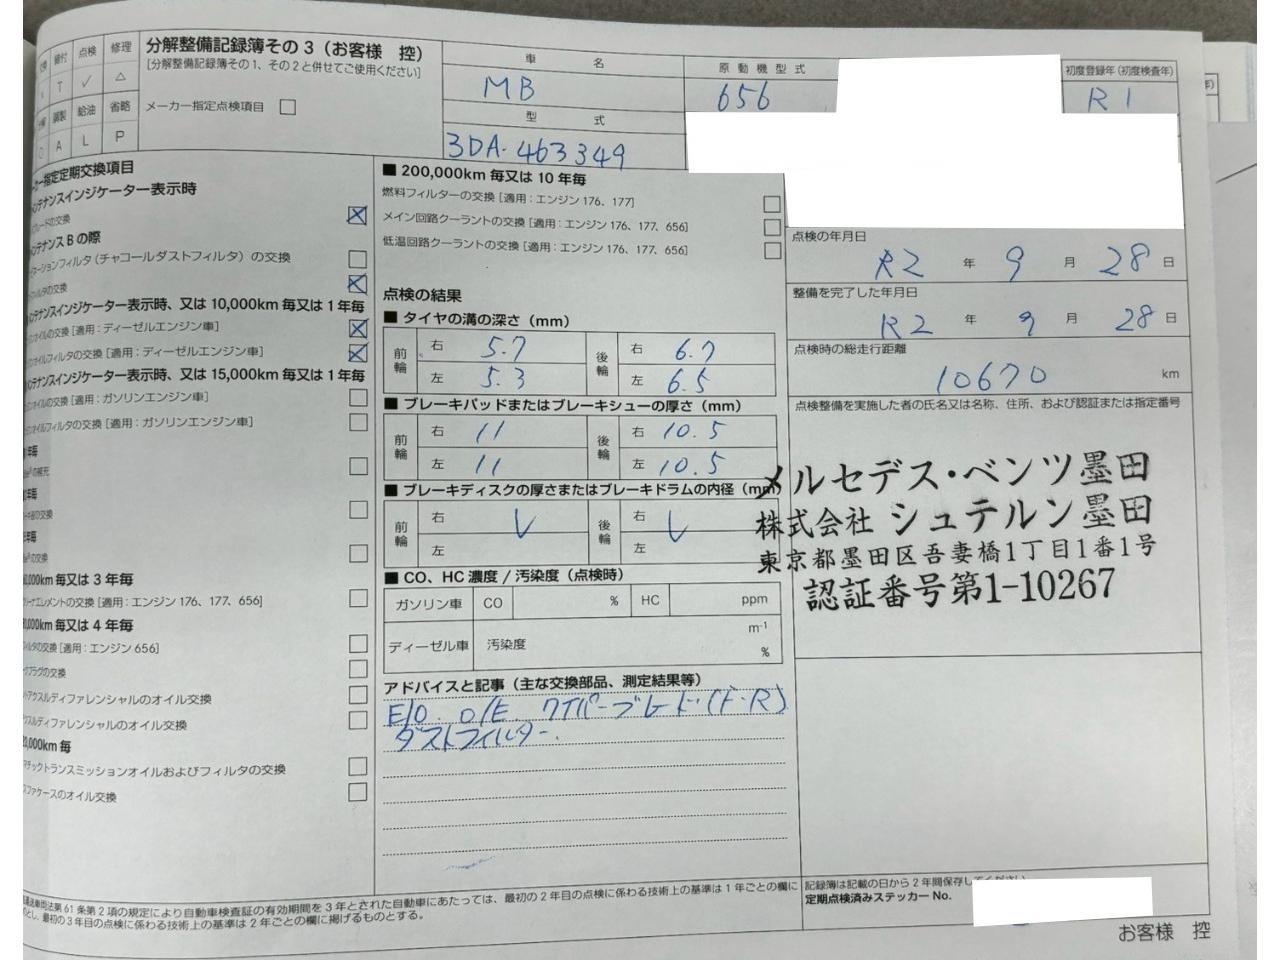 締付 点検 修理
T ✓ △
調製 給油 省略
A L P
分解整備記録簿その3（お客様 控）
[分解整備記録簿その1、その2と併せてご使用ください]
メーカー指定点検項目 □
車 名
MB
原動機型式
656
初度登録年（初度検査年）
R1
型 式
3DA-463349
カー指定定期交換項目
メンテナンスインジケーター表示時
ブレードの交換
メンテナンスBの際
ーションフィルタ（チャコールダストフィルタ）の交換
フィルタの交換
メンテナンスインジケーター表示時、又は10,000km毎又は1年毎
ンオイルの交換［適用：ディーゼルエンジン車］
ンオイルフィルタの交換［適用：ディーゼルエンジン車］
メンテナンスインジケーター表示時、又は15,000km毎又は1年毎
ンオイルの交換［適用：ガソリンエンジン車］
ンオイルフィルタの交換［適用：ガソリンエンジン車］
年毎
の補充
の交換
年毎
の交換
0,000km毎又は3年毎
リーナエレメントの交換［適用：エンジン176、177、656］
0,000km毎又は4年毎
ィルタの交換［適用：エンジン656］
クプラグの交換
アクスルディファレンシャルのオイル交換
クスルディファレンシャルのオイル交換
0,000km毎
マチックトランスミッションオイルおよびフィルタの交換
スファケースのオイル交換
■ 200,000km毎又は10年毎
燃料フィルターの交換［適用：エンジン176、177］
メイン回路クーラントの交換［適用：エンジン176、177、656］
低温回路クーラントの交換［適用：エンジン176、177、656］
点検の結果
■ タイヤの溝の深さ（mm）
前輪 右 5.7 後輪 右 6.7
左 5.3 左 6.5
■ ブレーキパッドまたはブレーキシューの厚さ（mm）
前輪 右 11 後輪 右 10.5
左 11 左 10.5
■ ブレーキディスクの厚さまたはブレーキドラムの内径（mm）
前輪 右 ✓ 後輪 右 ✓
左 左
■ CO、HC濃度／汚染度（点検時）
ガソリン車 CO % HC ppm
ディーゼル車 汚染度 m⁻¹
%
アドバイスと記事（主な交換部品、測定結果等）
E/O. O/E. ワイパーブレード（F・R）
ダストフィルター.
点検の年月日
R2 年 9 月 28 日
整備を完了した年月日
R2 年 9 月 28 日
点検時の総走行距離
10670 km
点検整備を実施した者の氏名又は名称、住所、および認証または指定番号
メルセデス・ベンツ墨田
株式会社 シュテルン墨田
東京都墨田区吾妻橋1丁目1番1号
認証番号第1-10267
送車両法第61条第2項の規定により自動車検査証の有効期間を3年とされた自動車にあたっては、最初の2年目の点検に係わる技術上の基準は1年ごとの欄に
とし、最初の3年目の点検に係わる技術上の基準は2年ごとの欄に掲げるものとする。
記録簿は記載の日から2年間保存してください
定期点検済みステッカーNo.
お客様 控